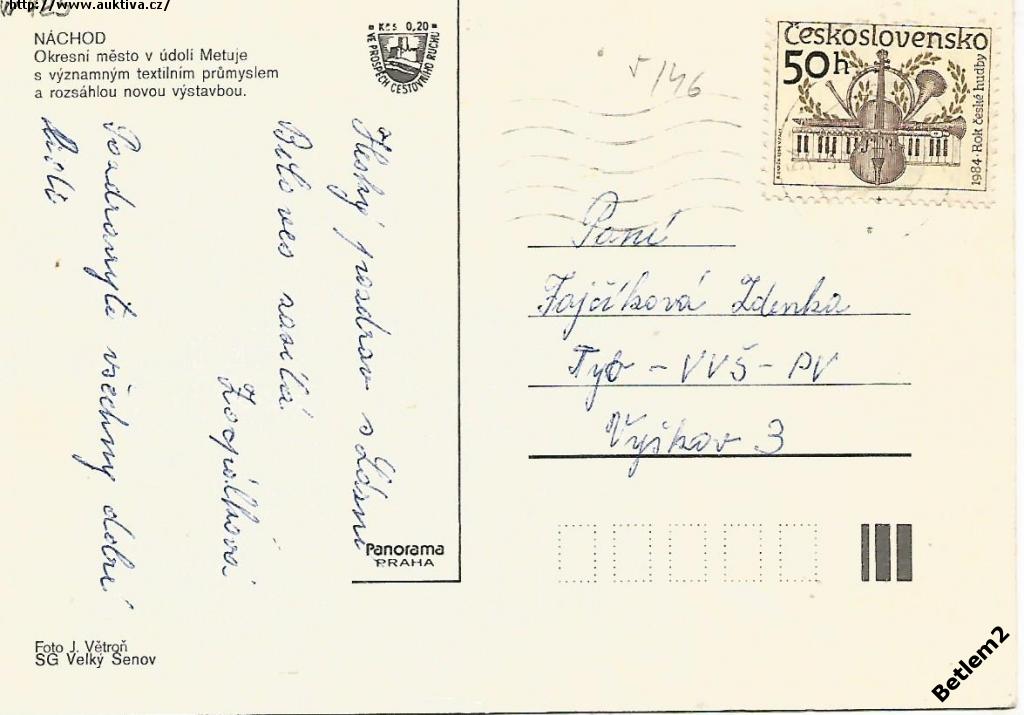 http://www.auktiva.cz/
NÁCHOD
Okresní město v údolí Metuje
s významným textilním průmyslem
a rozsáhlou novou výstavbou.
• Kčs 0,20 •
VE PROSPĚCH CESTOVNÍHO RUCHU
5/46
Československo
50h
1984 · Rok české hudby
Hezký pozdrav s Lázní
Běloves zasílá
Zocpálková
Pozdravujte všechny dobré
lidi
Paní
Fajčíková Zdenka
Týb - VVŠ - PV
Vyškov 3
Panorama
PRAHA
Foto J. Větroň
SG Velký Šenov
Betlem2